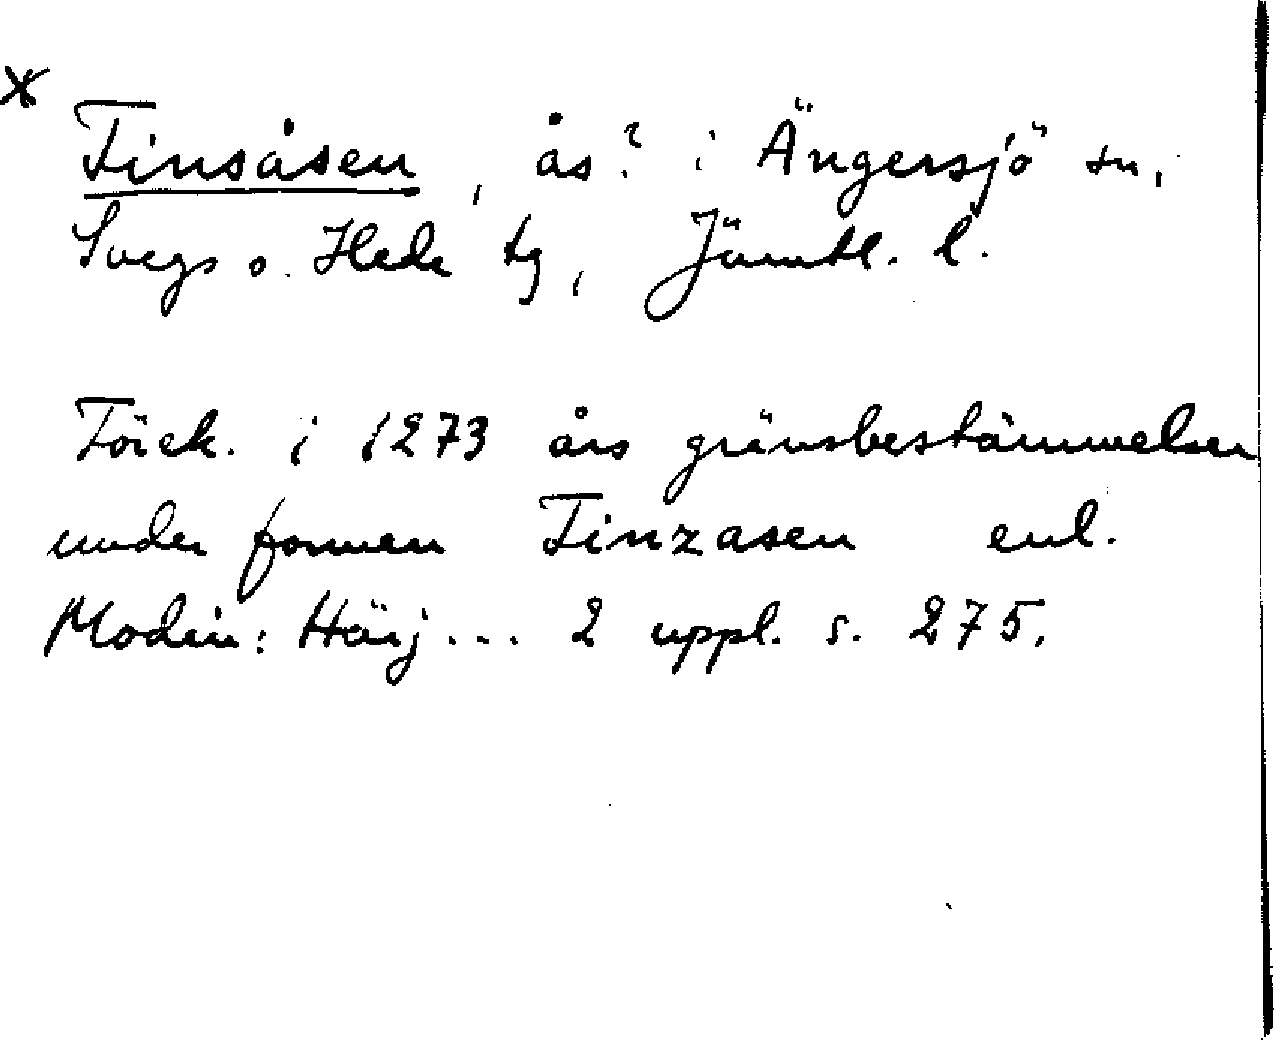 * Tinsåsen, ås? i Ängersjö sn,
Svegs o. Hede tg, Jämtl. l.
Förek. i 1273 års gränsbestämmelser
under formen Tinzasen enl.
Modin: Härj... 2 uppl. s. 275.